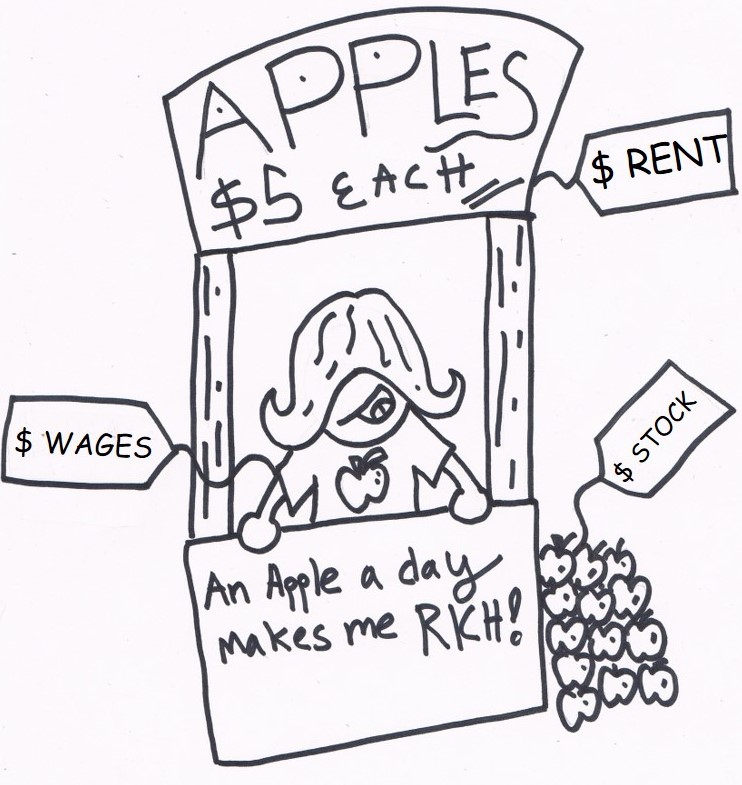 APPLES
$5 EACH
$ RENT
$ WAGES
$ STOCK
An Apple a day
makes me RICH!